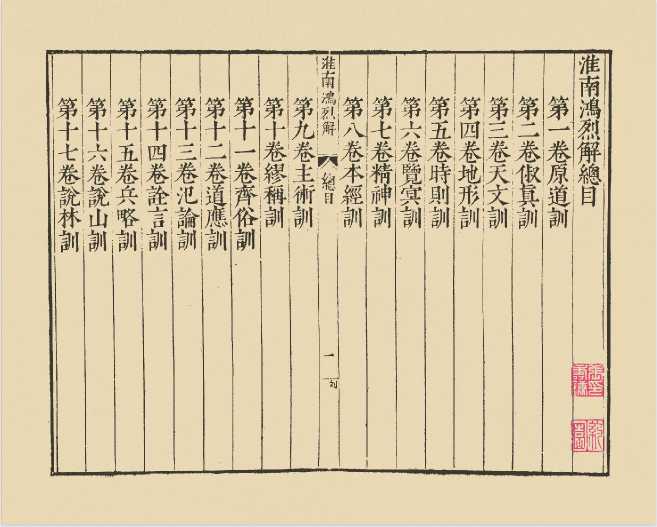 淮南鴻烈解總目
第一卷原道訓
第二卷俶真訓
第三卷天文訓
第四卷地形訓
第五卷時則訓
第六卷覽冥訓
第七卷精神訓
第八卷本經訓
淮南鴻烈解
總目
一
第九卷主術訓
第十卷繆稱訓
第十一卷齊俗訓
第十二卷道應訓
第十三卷氾論訓
第十四卷詮言訓
第十五卷兵略訓
第十六卷說山訓
第十七卷說林訓